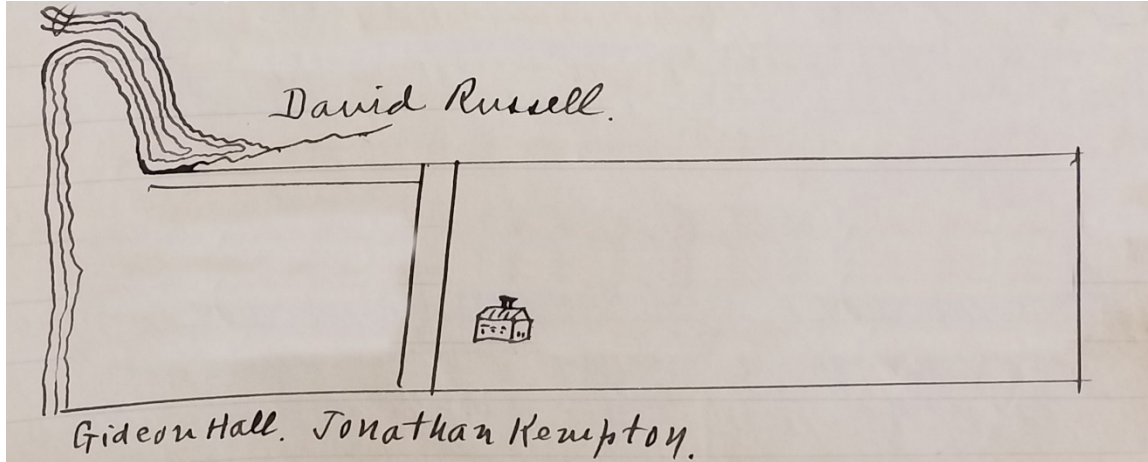 David Russell.
Gideon Hall. Jonathan Kempton.